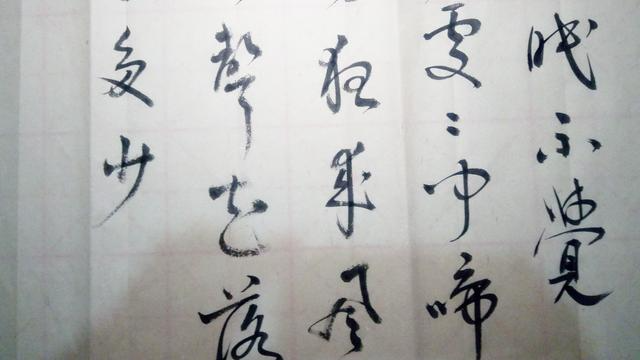 眠不覺
處〻聞啼
夜來風
聲花落
多少